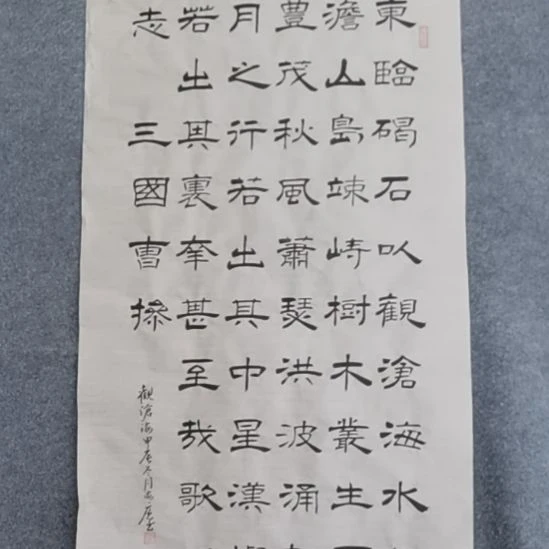 東臨碣石以觀滄海水
澹山島竦峙樹木叢生
豊茂秋風蕭瑟洪波涌
月之行若出其中星漢
若出其裏幸甚至哉歌
志 三國曹操
觀滄海甲辰冬月